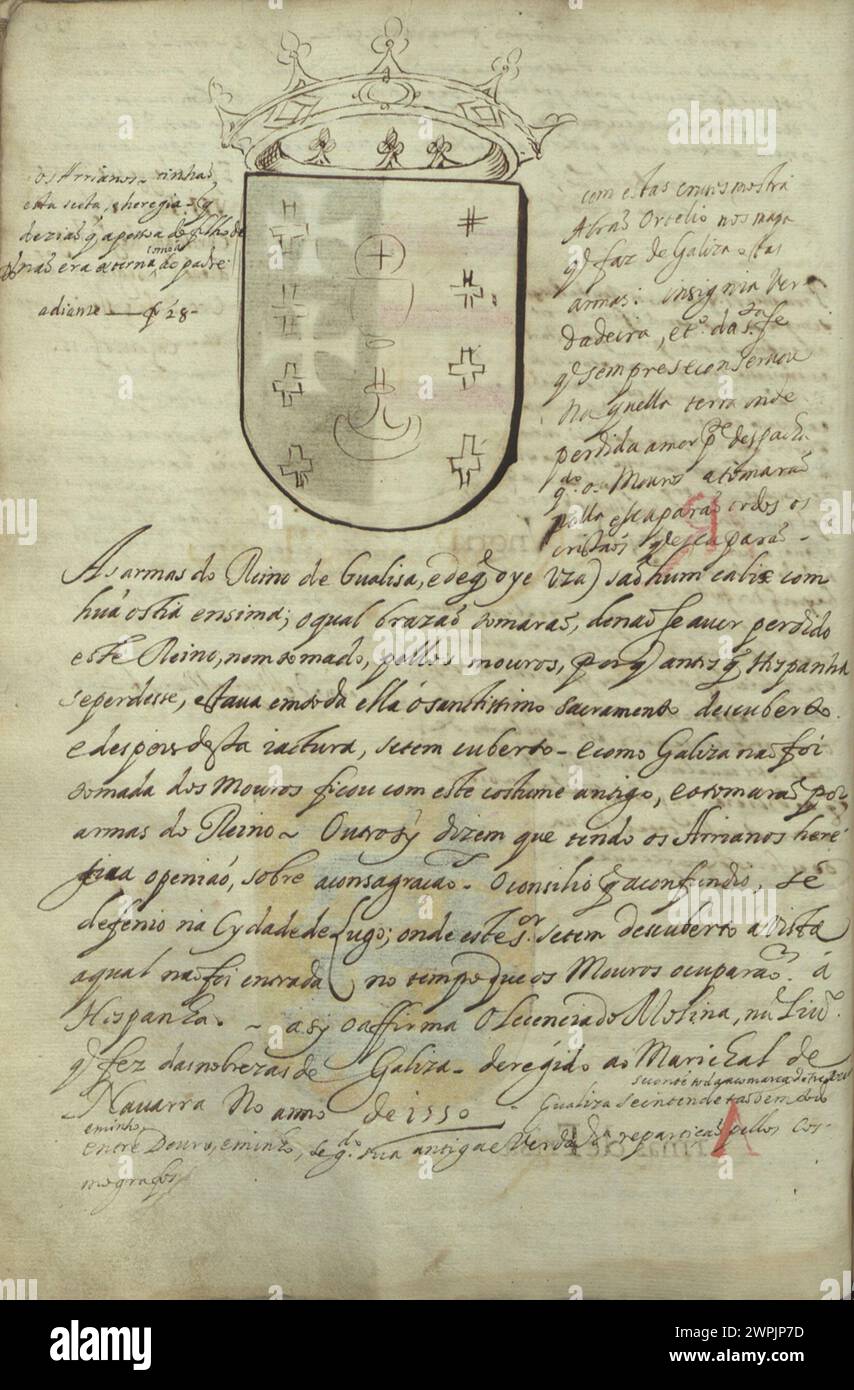 os Arrianos tinhaõ
esta seita, & heregia q̃
deziaõ q̃ a pessoa do filho de
Ds naõ era eterna, como a do padre
adiante — f 28 -
com estas cruzes mostra
Abraõ Ortelio no mapa
q̃ faz de Galiza estas
armas: insignia ver
dadeira, etc. da sta fe
q̃ sempre se conservou
na quella terra onde
perdida a mor pte despaña
qdo os Mouros a tomaraõ
pella escaparaõ todos os
cristaõs q̃ escaparaõ -
As armas do Reino de Gualisa, e de q̃ oye uza) saõ hum calix com
huã ostia ensima; o qual brazaõ tomaraõ, de naõ se aver perdido
este Reino, nem tomado, pellos mouros, porq̃ antes q̃ Hispanha
se perdesse, estava em toda ella o santissimo sacramento descuberto.
e despois desta iactura, se tem cuberto - e como Galiza naõ foi
tomada dos Mouros ficou com este costume antigo, e o tomaraõ por
armas do Reino - Outrosy dizem que tendo os Arrianos heré
openiaõ, sobre a consagracaõ - O consilio q̃ a confundio, se
defenio na Cydade de Lugo; onde este Sor. se tem descuberto a vista
a qual naõ foi entrada no tempo que os Mouros ocuparaõ á
Hispanha - asy o affirma O Lecenciado Molina, nũ Livro.
q̃ fez das nobrezas de Galiza - deregido ao Marichal de
Navarra No anno de 1550 -
Gualiza se entende
entre Douro, e minho, segdo. sua antiga e verdadra repartiçaõ pellos cos-
mografos
alamy
Image ID: 2WPJP7D
www.alamy.com